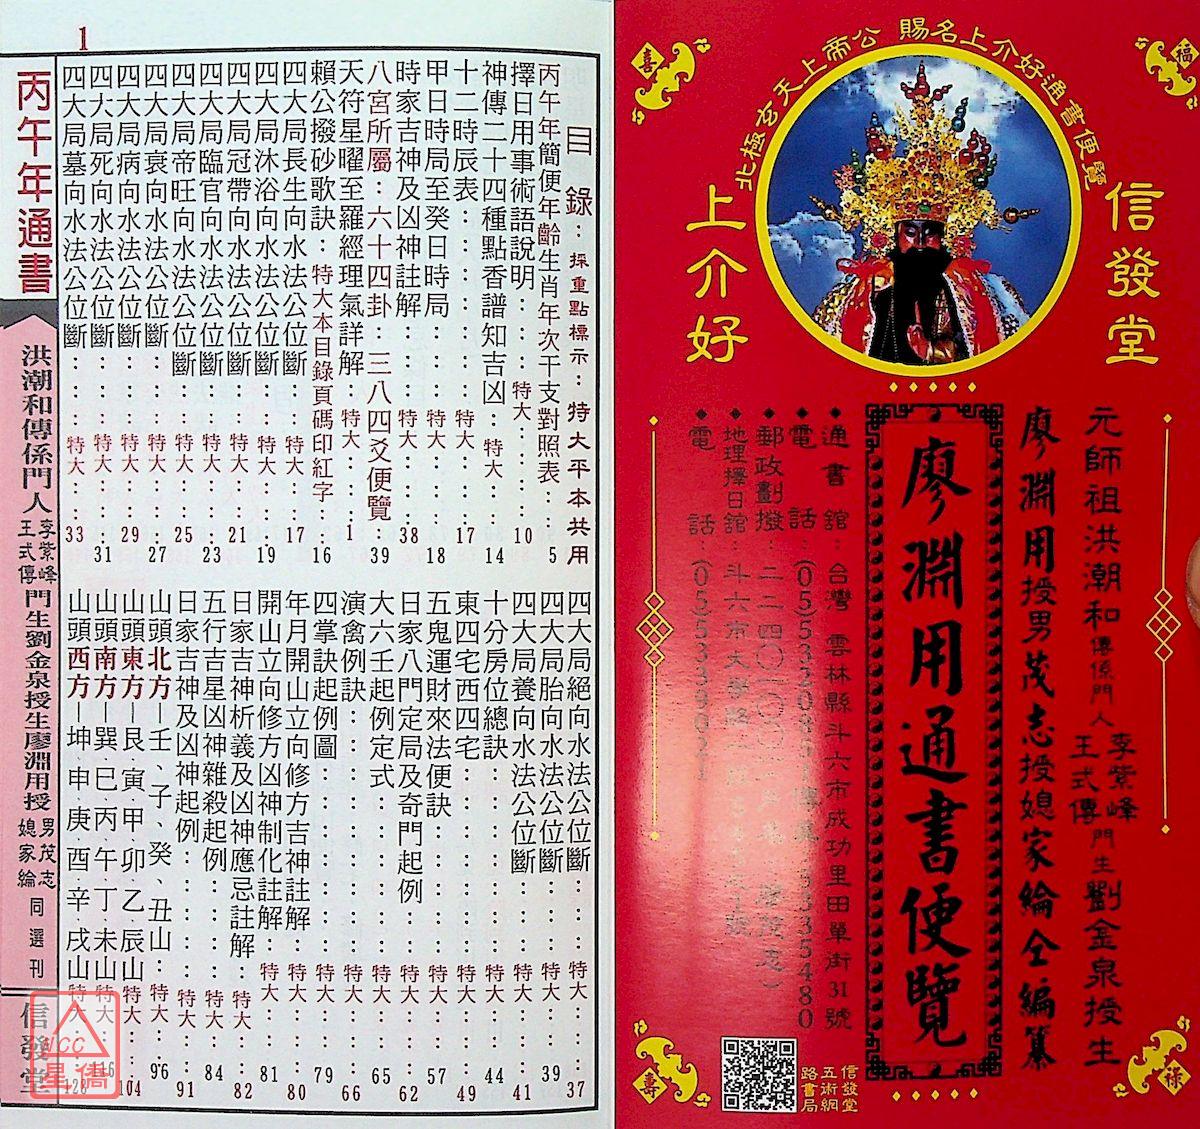 北極玄天上帝公 賜名上介好通書便覽
福
喜
祿
壽
信發堂
上介好
元師祖洪潮和傳係門人李紫峰王式傳門生劉金泉授生
廖淵用授男茂志授媳家綸仝編纂
廖淵用通書便覽
通書舘:台灣 雲林縣斗六市成功里田單街31號
信發堂
五術網
路書局
1
丙午年通書
洪潮和傳係門人李紫峰王式傳門生劉金泉授生廖淵用授男茂志媳家綸同選刊
信發堂
目錄:採重點標示:特大平本共用
丙午年簡便年齡生肖年次干支對照表:: 5
擇日用事術語說明:::特大:: 10
神傳二十四種點香譜知吉凶:特大:: 14
十二時辰表:::::特大::: 17
甲日時局至癸日時局:::特大::: 18
時家吉神及凶神註解:::特大::: 38
八宮所屬:六十四卦:三八四爻便覽: 39
天符星曜至羅經理氣詳解:特大::: 1
賴公撥砂歌訣:特大本目錄頁碼印紅字: 16
四大局長生向水法公位斷::特大::: 17
四大局沐浴向水法公位斷::特大::: 19
四大局冠帶向水法公位斷::特大::: 21
四大局臨官向水法公位斷::特大::: 23
四大局帝旺向水法公位斷::特大::: 25
四大局衰向水法公位斷:::特大::: 27
四大局病向水法公位斷:::特大::: 29
四大局死向水法公位斷:::特大::: 31
四大局墓向水法公位斷:::特大::: 33
四大局絕向水法公位斷:::特大::: 37
四大局胎向水法公位斷:::特大::: 39
四大局養向水法公位斷:::特大::: 41
十分房位總訣::::::特大::: 44
東四宅西四宅::::::特大::: 49
五鬼運財來法便訣::::特大::: 57
日家八門定局及奇門起例:特大::: 62
大六壬起例定式:::::特大::: 65
演禽例訣::::::::特大::: 66
四掌訣起例圖::::::特大::: 79
年月開山立向修方吉神註解:特大::: 80
開山立向修方凶神制化註解:特大::: 81
日家吉神析義及凶神應忌註解特大:: 82
五行吉星凶神雜殺起例:::特大:: 84
日家吉神及凶神起例::::特大:: 91
山頭北方—壬、子、癸、丑山:特大:: 96
山頭東方—艮、寅、甲、卯乙辰山特大:: 104
山頭南方—巽、巳、丙午丁未山特大:: 116
山頭西方—坤、申、庚酉辛戌山特大::
星僑